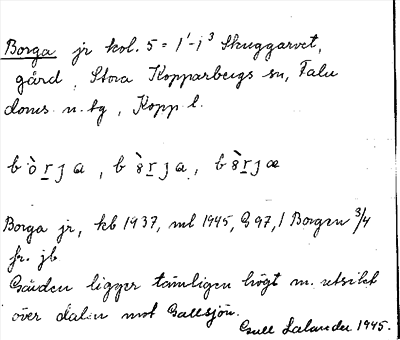 Borga jr kol. 5 = 1¹-i³ Skuggarvet,
gård, Stora Kopparbergs sn, Falu
doms. n. tg, Kopp l.
bòrja, bòrja, bòrjæ
Borga jr, kb 1937, ml 1945, G 97, / Borgen 3/4
fr. jb
Gården ligger tämligen högt m. utsikt
över dalen mot Gallsjön.
Gull Lalander 1945.